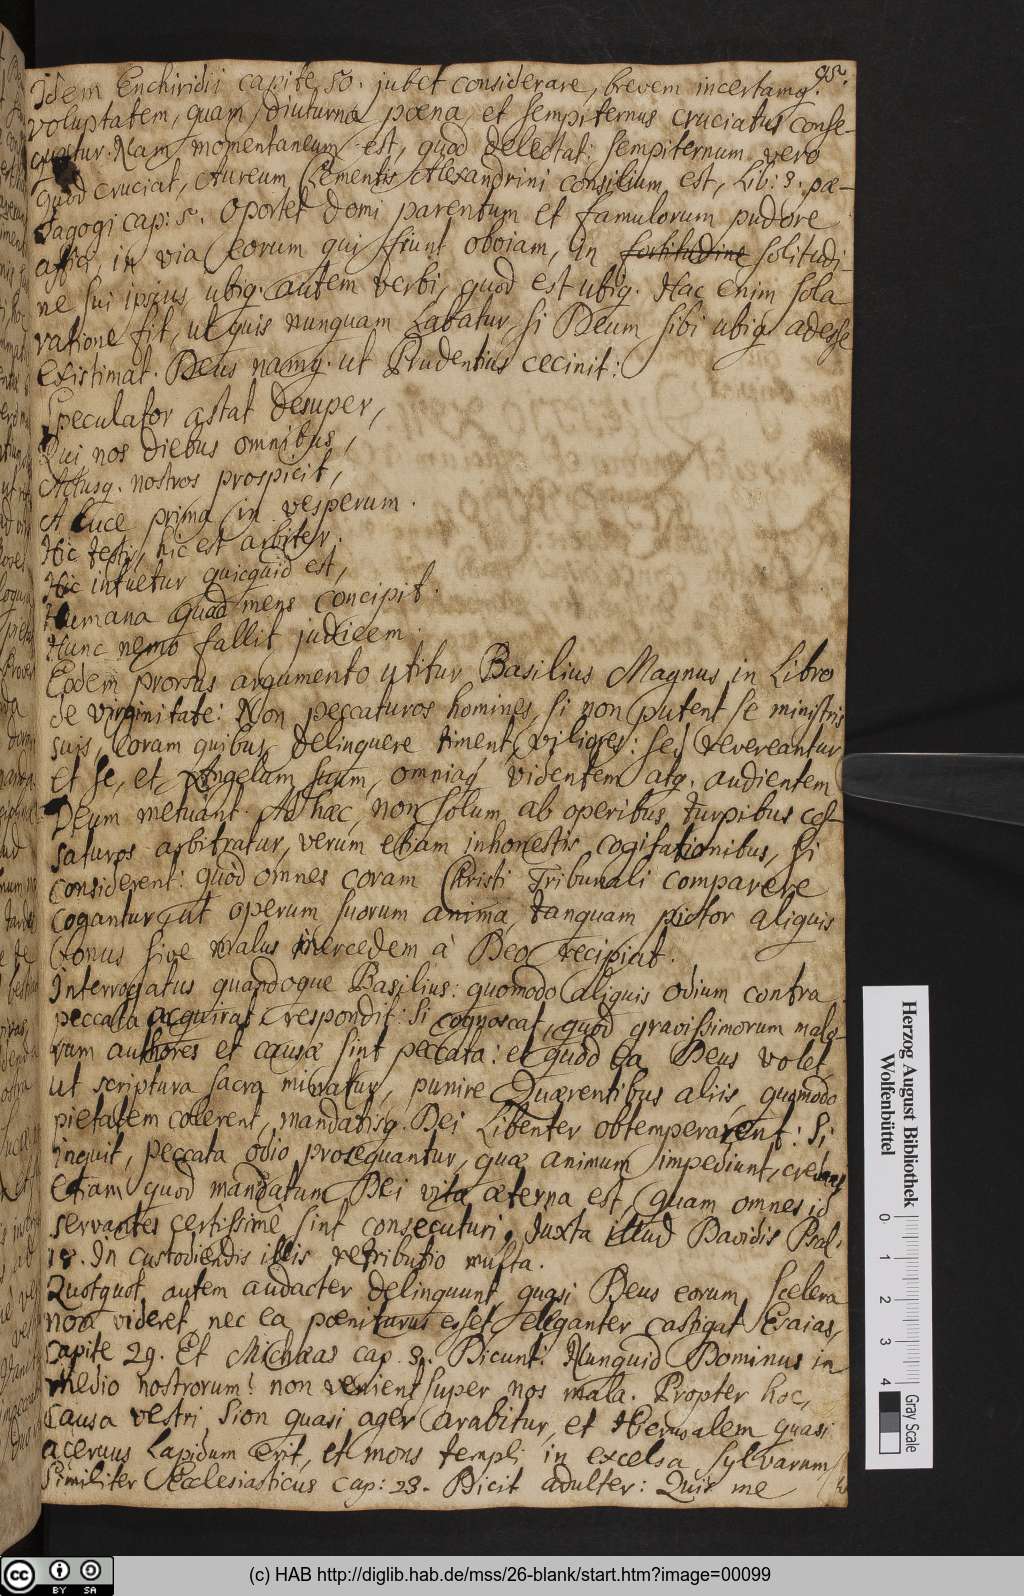 95.
Idem Enchiridii capite 50. jubet considerare, brevem incertamq.
voluptatem, quam diuturna poena, et sempiternus cruciatus conse-
quatur. Nam momentaneum est, quod delectat; sempiternum vero
quod cruciat. Aureum Clementis Alexandrini consilium est, Lib: 3. pæ-
dagogi cap: 5. Oportet domi parentum et famulorum pudore
affici, in via eorum qui fiunt oboiam, in fortitudine solitudi-
ne sui ipsius, ubiq. autem verbi, quod est ubiq. Hac enim sola
ratione fit, ut quis nunquam Labatur, si Deum sibi ubiq. adesse
existimat. Deus namq. ut Prudentius cecinit:
Speculator astat desuper,
Qui nos diebus omnibus,
Actusq. nostros prospicit,
A luce prima in vesperum.
Hic testis, hic est arbiter.
Hic intuetur quicquid est,
Humana quod mens concipit.
Hunc nemo fallit judicem.
Eodem prorsus argumento utitur Basilius Magnus in Libro
de virginitate: Non peccaturos homines, si non putent se ministris
suis, coram quibus delinquere timent, viliores: sed revereantur
et se, et Angelum suum, omniaq. videntem atq. audientem
Deum metuant. Ad hæc, non solum ab operibus turpibus ces-
saturos arbitratur, verum etiam inhonestis cogitationibus, si
considerent: quod omnes coram Christi Tribunali comparere
cogantur, ut operum suorum anima, tanquam pictor aliquis
bonus sive malus mercedem à Deo recipiat.
Interrogatus quandoque Basilius: quomodo aliquis odium contra
peccata acquirat, respondit: Si cognoscat, quod gravissimorum malo-
rum authores et causæ sint peccata: et quod ea Deus volet,
ut scriptura sacra minatur, punire. Quærentibus aliis, quomodo
pietatem colerent, mandatisq. Dei Libenter obtemperarent: Si
inquit, peccata odio prosequantur, quæ animum impediunt, credens
etiam quod mandatum Dei vita æterna est, quam omnes id
servantes certissimè sint consecuturi. Juxta illud Davidis Psal:
18. In custodiendis illis retributio multa.
Quotquot autem audacter delinquunt, quasi Deus eorum scelera
non videret, nec ea poeniturus esset, eleganter castigat Esaias,
capite 29. Et Michæas cap. 3. Dicunt: Nunquid Dominus in
medio nostrorum? non venient super nos mala. Propter hoc,
causa vestri Sion quasi ager arabitur, et Hierusalem quasi
acervus Lapidum erit, et mons templi in excelsa sylvarum
Similiter Ecclesiasticus cap: 23. Dicit adulter: Quis me
Herzog August Bibliothek
Wolfenbüttel
0 1 2 3 4
Gray Scale
cc BY SA
(c) HAB http://diglib.hab.de/mss/26-blank/start.htm?image=00099